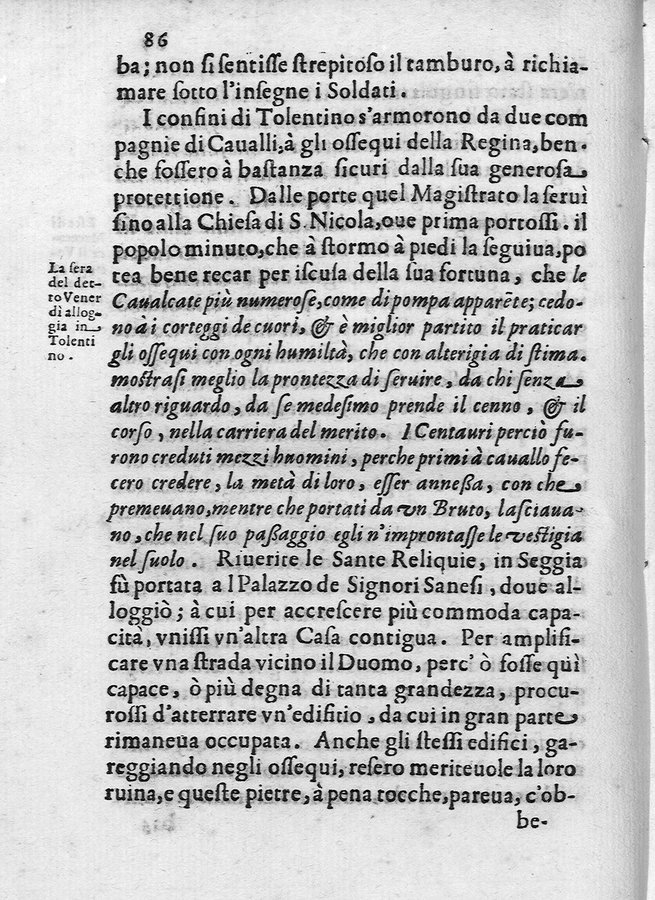 86
ba; non si sentisse strepitoso il tamburo, à richia-
mare sotto l'insegne i Soldati.
I confini di Tolentino s'armorono da due com
pagnie di Caualli, à gli ossequi della Regina, ben-
che fossero à bastanza sicuri dalla sua generosa
protettione. Dalle porte quel Magistrato la seruì
sino alla Chiesa di S. Nicola, oue prima portossi. il
popolo minuto, che à stormo à piedi la seguiua, po
tea bene recar per iscusa della sua fortuna, che le
Caualcate più numerose, come di pompa apparēte; cedo-
no à i corteggi de cuori, & è miglior partito il praticar
gli ossequi con ogni humiltà, che con alterigia di stima.
mostrasi meglio la prontezza di seruire, da chi senza
altro riguardo, da se medesimo prende il cenno, & il
corso, nella carriera del merito. I Centauri perciò fu-
rono creduti mezzi huomini, perche primi à cauallo fe-
cero credere, la metà di loro, esser annessa, con che
premeuano, mentre che portati da vn Bruto, lasciaua-
no, che nel suo passaggio egli n'improntasse le vestigia
nel suolo. Riuerite le Sante Reliquie, in Seggia
fù portata al Palazzo de Signori Sanesi, doue al-
loggiò; à cui per accrescere più commoda capa-
cità, vnissi vn'altra Casa contigua. Per amplifi-
care vna strada vicino il Duomo, perc' ò fosse quì
capace, ò più degna di tanta grandezza, procu-
rossi d'atterrare vn'edifitio, da cui in gran parte
rimaneua occupata. Anche gli stessi edifici, ga-
reggiando negli ossequi, resero meriteuole la loro
ruina, e queste pietre, à pena tocche, pareua, c'ob-
be-
La sera
del det-
to Vener
dì allog-
gia in
Tolenti
no.